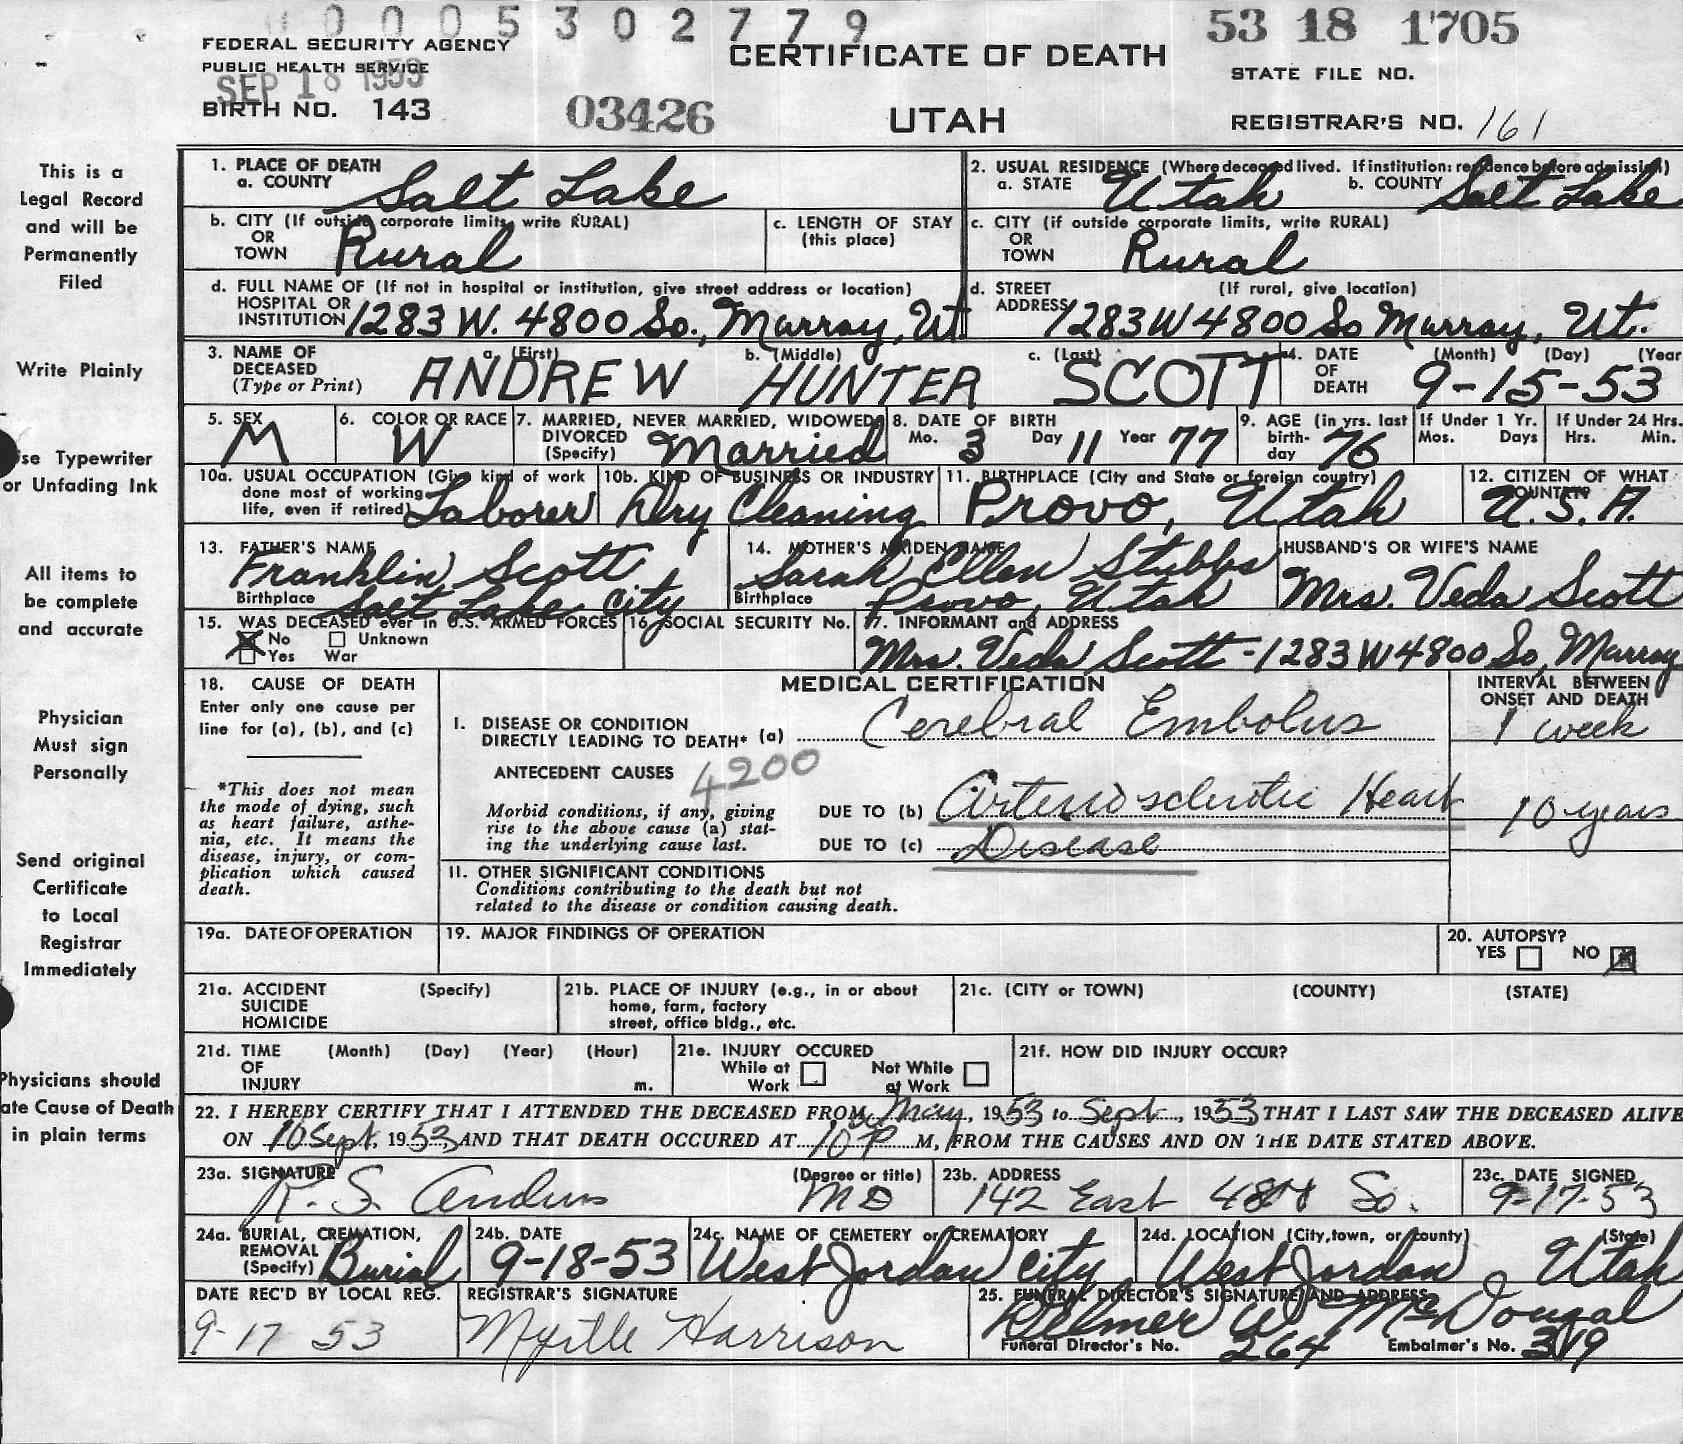 0005302779
53 18 1705
FEDERAL SECURITY AGENCY
PUBLIC HEALTH SERVICE
SEP 18 1953
CERTIFICATE OF DEATH
STATE FILE NO.
BIRTH NO. 143
03426
UTAH
REGISTRAR'S NO. 161
This is a
Legal Record
and will be
Permanently
Filed
Write Plainly
se Typewriter
or Unfading Ink
All items to
be complete
and accurate
Physician
Must sign
Personally
Send original
Certificate
to Local
Registrar
Immediately
Physicians should
ate Cause of Death
in plain terms
1. PLACE OF DEATH
a. COUNTY Salt Lake
2. USUAL RESIDENCE (Where deceased lived. If institution: residence before admission)
a. STATE Utah b. COUNTY Salt Lake
b. CITY (If outside corporate limits, write RURAL)
OR
TOWN Rural
c. LENGTH OF STAY
(this place)
c. CITY (if outside corporate limits, write RURAL)
OR
TOWN Rural
d. FULL NAME OF (If not in hospital or institution, give street address or location)
HOSPITAL OR
INSTITUTION 1283 W. 4800 So., Murray, Ut
d. STREET (If rural, give location)
ADDRESS 1283 W 4800 So Murray, Ut.
3. NAME OF
DECEASED
(Type or Print)
a. (First) b. (Middle) c. (Last)
ANDREW HUNTER SCOTT
4. DATE
OF
DEATH
(Month) (Day) (Year
9-15-53
5. SEX
M
6. COLOR OR RACE
W
7. MARRIED, NEVER MARRIED, WIDOWED,
DIVORCED
(Specify) Married
8. DATE OF BIRTH
Mo. 3 Day 11 Year 77
9. AGE (in yrs. last
birth-
day 76
If Under 1 Yr.
Mos. Days
If Under 24 Hrs.
Hrs. Min.
10a. USUAL OCCUPATION (Give kind of work
done most of working
life, even if retired) Laborer
10b. KIND OF BUSINESS OR INDUSTRY
Dry Cleaning
11. BIRTHPLACE (City and State or foreign country)
Provo, Utah
12. CITIZEN OF WHAT
COUNTRY?
U.S.A.
13. FATHER'S NAME
Franklin Scott
Birthplace Salt Lake City
14. MOTHER'S MAIDEN NAME
Sarah Ellen Stubbs
Birthplace Provo, Utah
HUSBAND'S OR WIFE'S NAME
Mrs. Veda Scott
15. WAS DECEASED ever in U.S. ARMED FORCES
No Unknown
Yes War
16. SOCIAL SECURITY No.
17. INFORMANT and ADDRESS
Mrs. Veda Scott - 1283 W 4800 So, Murray
18. CAUSE OF DEATH
Enter only one cause per
line for (a), (b), and (c)
*This does not mean
the mode of dying, such
as heart failure, asthe-
nia, etc. It means the
disease, injury, or com-
plication which caused
death.
MEDICAL CERTIFICATION
INTERVAL BETWEEN
ONSET AND DEATH
I. DISEASE OR CONDITION
DIRECTLY LEADING TO DEATH* (a) Cerebral Embolus
1 week
ANTECEDENT CAUSES 4200
Morbid conditions, if any, giving
rise to the above cause (a) stat-
ing the underlying cause last.
DUE TO (b) Arteriosclerotic Heart
10 years
DUE TO (c) Disease
II. OTHER SIGNIFICANT CONDITIONS
Conditions contributing to the death but not
related to the disease or condition causing death.
19a. DATE OF OPERATION
19. MAJOR FINDINGS OF OPERATION
20. AUTOPSY?
YES NO
21a. ACCIDENT (Specify)
SUICIDE
HOMICIDE
21b. PLACE OF INJURY (e.g., in or about
home, farm, factory
street, office bldg., etc.
21c. (CITY or TOWN) (COUNTY) (STATE)
21d. TIME (Month) (Day) (Year) (Hour)
OF
INJURY m.
21e. INJURY OCCURED
While at Not While
Work at Work
21f. HOW DID INJURY OCCUR?
22. I HEREBY CERTIFY THAT I ATTENDED THE DECEASED FROM May, 1953 to Sept, 1953 THAT I LAST SAW THE DECEASED ALIVE
ON 10 Sept. 1953 AND THAT DEATH OCCURED AT 10 P M, FROM THE CAUSES AND ON THE DATE STATED ABOVE.
23a. SIGNATURE (Degree or title)
MD
23b. ADDRESS
142 East 4800 So.
23c. DATE SIGNED
9-17-53
24a. BURIAL, CREMATION,
REMOVAL
(Specify) Burial
24b. DATE
9-18-53
24c. NAME OF CEMETERY or CREMATORY
West Jordan City
24d. LOCATION (City, town, or county) (State)
West Jordan Utah
DATE REC'D BY LOCAL REG.
9-17 53
REGISTRAR'S SIGNATURE
Myrtle Harrison
25. FUNERAL DIRECTOR'S SIGNATURE AND ADDRESS
Delmer W McDougal
Funeral Director's No. 264 Embalmer's No. 319